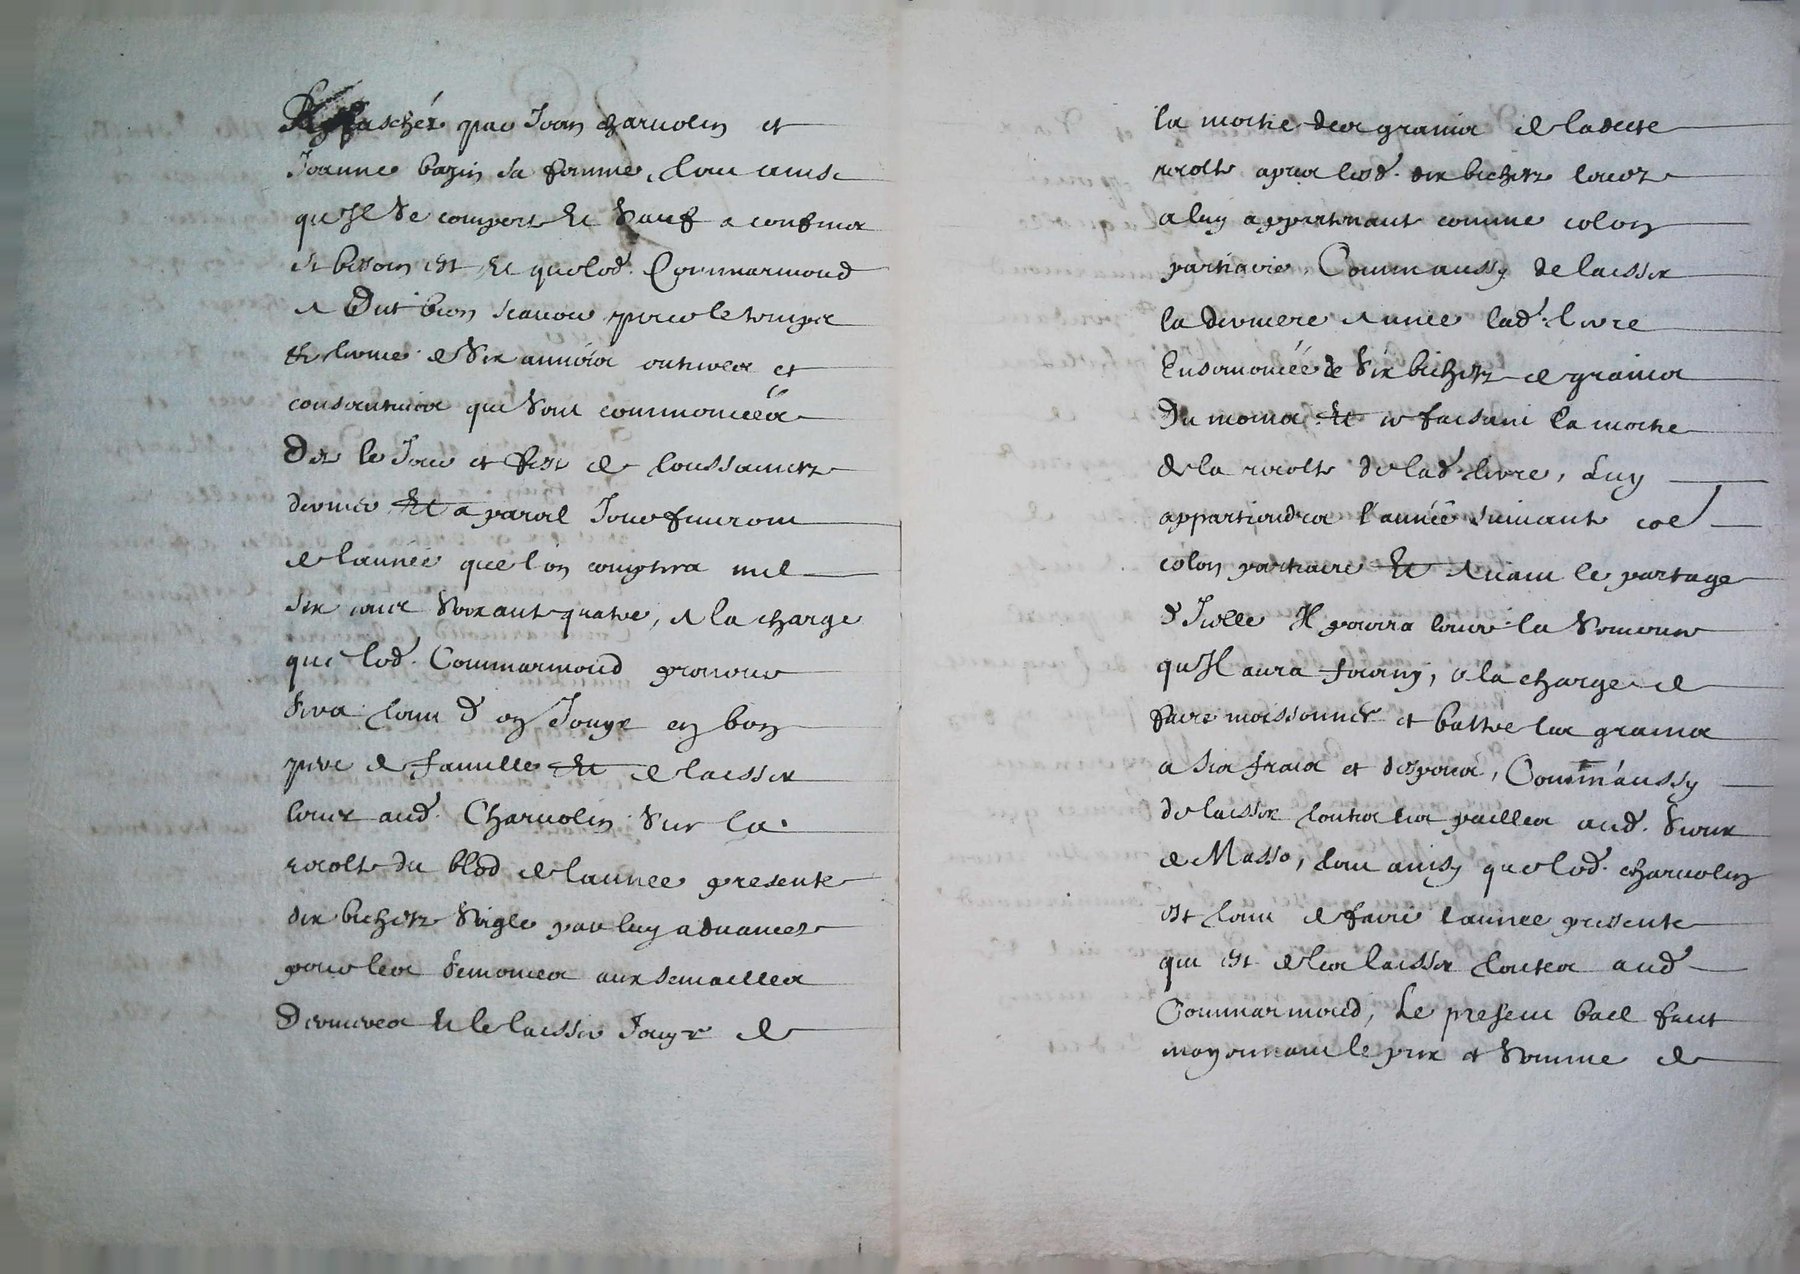 par Jean Charvolin et
Jeanne bazin sa femme, tout ainsi
qu'Il se comporte Et sauf a confiner
si besoin est, Et queled. Commarmond
a Dict bien scavoir pour le temps et
terme de six années entieres et
consecutives qui sont commencées
Des le Jour et feste de toussainctz
dernier Et a pareil Jour finiront
de l'année que l'on comptera mil
six centz soixante quatre, a la charge
que led. Commarmond
sera tenu d'en Jouyr en bon
pere de famille Et de laisser
lever aud. Charvolin sur la
recolte du bled de l'année presente
dix bichetz seigle par luy advancez
pour les semences aux semailles
Dernieres Et le laisser Jouyr de
la moitié des grains de ladicte
recolte apres lesd. dix bichetz levez
a luy appartenant comme colon
partiaire, Comm'aussy de laisser
la derniere année lad. terre
Ensemencée de six bichetz de grains
Du moins Et ce faisant la moitié
de la recolte de lad. terre, Luy
appartiendra l'année suivante co͞e
colon partiaire Et Avant le partage
d'Icelle Il pourra lever la semence
qu'Il aura fourny, a la charge de
faire moissonner et battre les grains
a ses fraix et despens, Comm'aussy
de laisser toutes les pailles aud. sieur
de Masso, tout ainsy queled. Charvolin
est tenu de faire l'année presente
qui est de les laisser toutes aud.
Commarmond, Le present bail faict
moyennant le prix et somme de